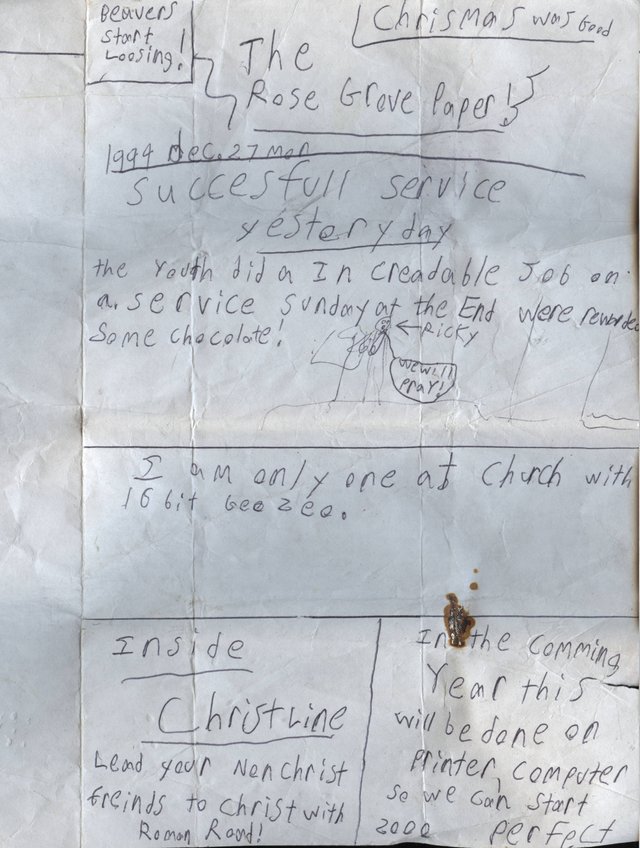 Beavers
start
Loosing!
Chrismas was Good
The
Rose Grove Paper!
1994 Dec. 27 mon
Succesfull service
yesteryday
the Youth did a In creadable Job on
a service Sunday at the End were rewarded
Some chocolate!
Ricky
we will
pray!
I am only one at Church with
16 bit Geo zeo.
Inside
Christline
Lead your NonChrist
freinds to Christ with
Roman Road!
In the comming
Year this
will be done on
printer, computer
so we can start
2000 perfect